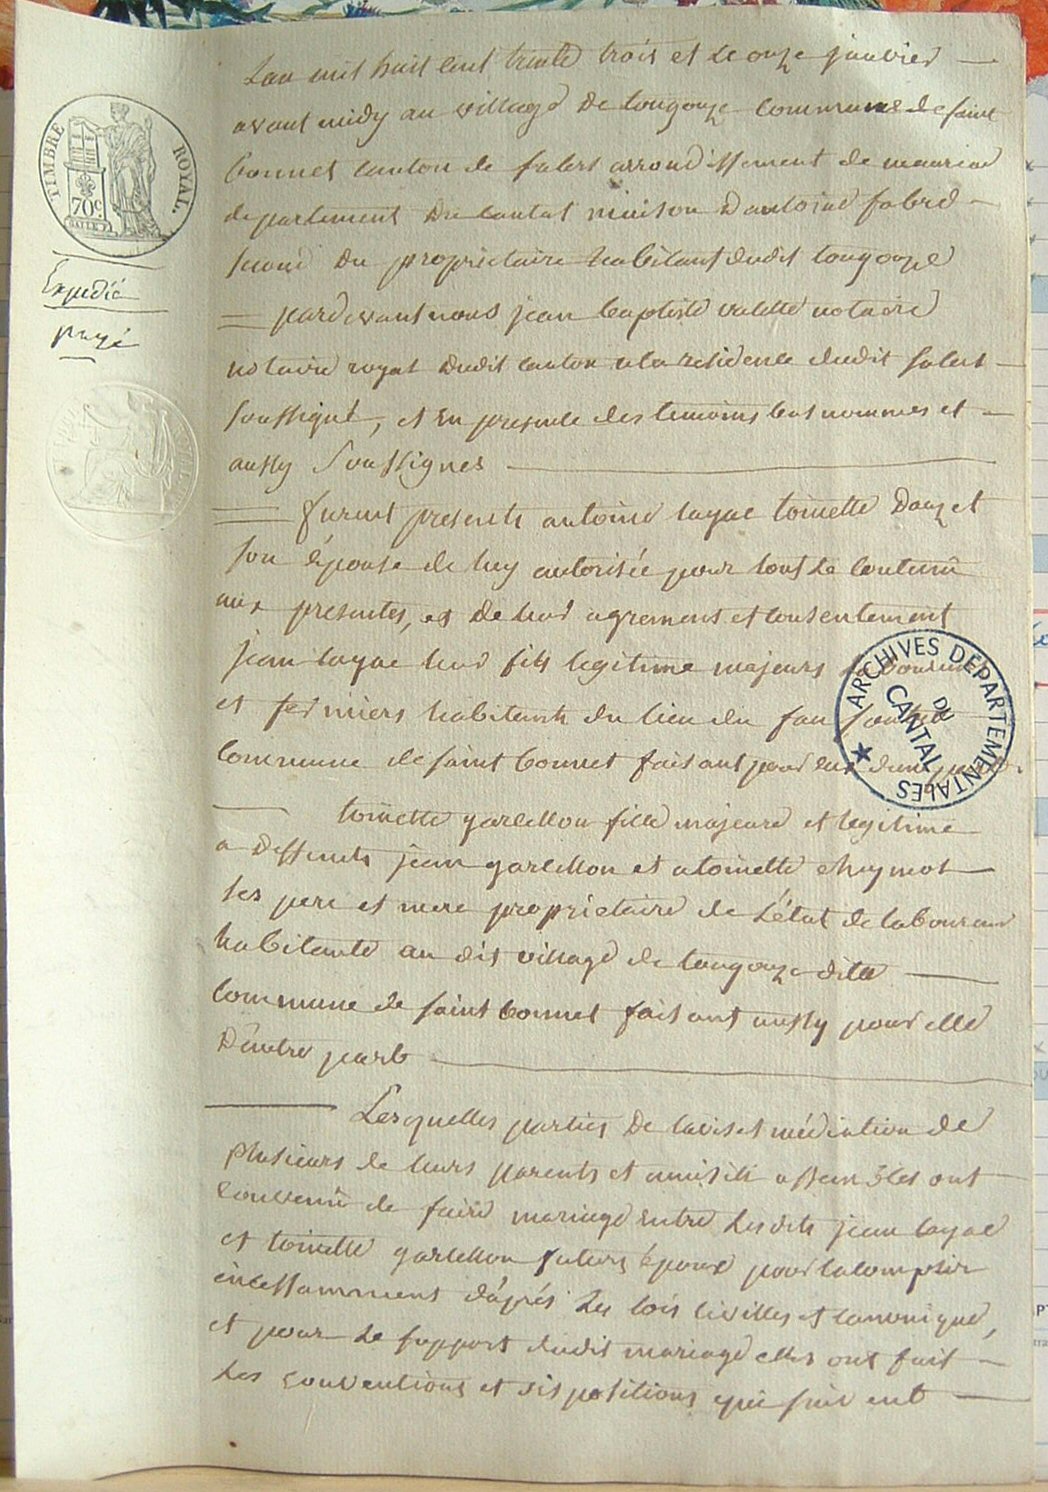 TIMBRE ROYAL.
70c.
Expedié
payé
L'an mil huit cent trente trois et le onze janvier
avant midy au village de tougouze commune de saint
bonnet canton de salers arrondissement de mauriac
departement du cantal maison d'antoine fabre
du propriétaire habitant dudit tougouze
pardevant nous jean baptiste valette notaire
notaire royal dudit canton a la residence dudit salers
soussigné, et en presence des temoins bas nommes et
aussy soussignes
furent presents antoine layac toinette dauzet
son épouse de luy autorisée pour tout le contenû
aux presentes, et de leur agrement et consentement
jean layac leur fils legitime majeurs
et fermiers habitants du lieu du fau
commune de saint bonnet faisant pour eux d'une part
toinette garcellon fille majeure et legitime
a deffunts jean garcellon et atoinette cheymol
ses pere et mere propriétaire de l'état de laboureur
habitante au dit village de tougouze dite
commune de saint bonnet faisant aussy pour elle
d'autre part
Lesquelles parties de l'avis et médiation de
plusieurs de leurs parents et amis ici assemblés ont
convenû de faire mariage entre lesdits jean layac
et toinette garcellon futurs époux pour l'acomplir
incessamment d'aprés les lois civilles et canonique,
et pour le support dudit mariage elles ont fait
les conventions et dispositions qui suivent
ARCHIVES DÉPARTEMENTALES
DU
CANTAL